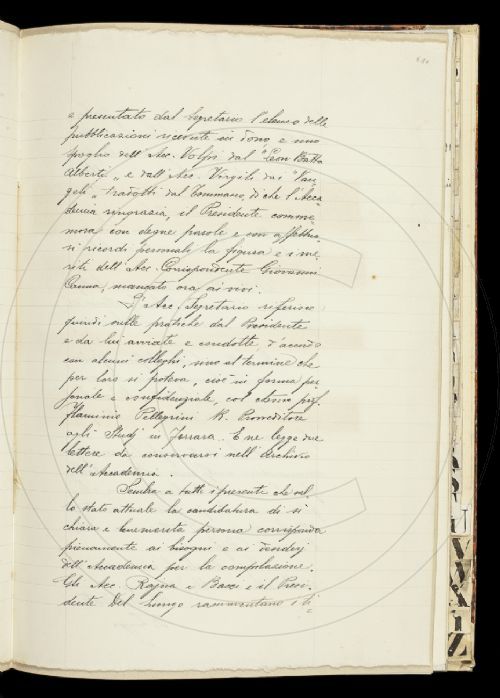 e presentato dal Segretario l'elenco delle
pubblicazioni ricevute in dono e uno
spoglio dell'Acc. Volpi dal "Leon Batta
Alberti" e dall'Acc. Virgili dai "Van=
geli" tradotti dal Tommaseo, di che l'Acca=
demia ringrazia, il Presidente comme=
mora con degne parole e con affettuo=
si ricordi personali la figura e i me=
riti dell'Acc. Corrispondente Giovanni
Canna, mancato ora ai vivi.
L'Acc. Segretario riferisce
quindi sulle pratiche dal Presidente
e da lui avviate e condotte, d'accordo
con alcuni colleghi, sino al termine che
per loro si poteva, cioè in forma per=
sonale e confidenziale, col prof.
Flaminio Pellegrini R. Provveditore
agli Studj in Ferrara. E ne legge due
lettere da conservarsi nell'Archivio
dell'Accademia.
Sembra a tutti i presenti che nel=
lo stato attuale la candidatura di sì
chiara e benemerita persona corrisponda
pienamente ai bisogni e ai
dell'Accademia per la compilazione.
Gli Acc. Rajna e Bacci e il Presi=
dente Del Lungo rammentano i ti=